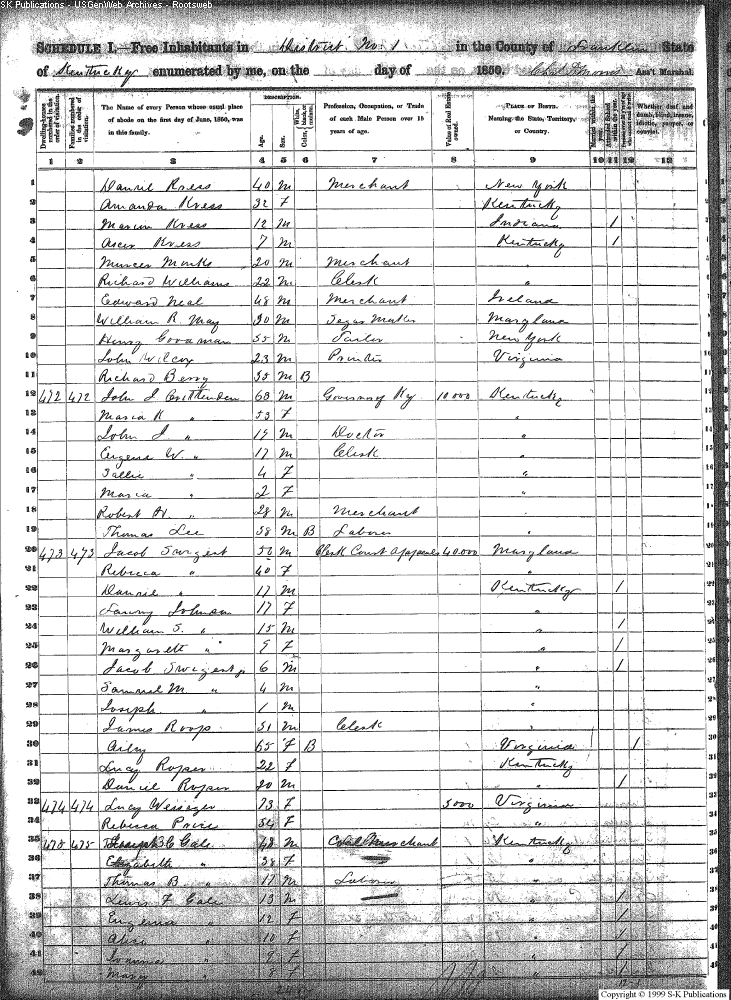 SK Publications - USGenWeb Archives - Rootsweb
SCHEDULE I.—Free Inhabitants in District No. 1 in the County of Franklin State
of Kentucky enumerated by me, on the day of 1850. Ass't Marshal.
Dwelling-houses numbered in the order of visitation. Families numbered in the order of visitation. The Name of every Person whose usual place of abode on the first day of June, 1850, was in this family. DESCRIPTION. Age. Sex. Color, White, black, or mulatto. Profession, Occupation, or Trade of each Male Person over 15 years of age. Value of Real Estate owned. PLACE OF BIRTH. Naming the State, Territory, or Country. Married within the year. Attended School within the year. Whether deaf and dumb, blind, insane, idiotic, pauper, or convict.
1 2 3 4 5 6 7 8 9 10 11 12 13
1 Kress 40 M Merchant New York
2 Amanda Kress 32 F Kentucky
3 Kress 12 M Indiana /
4 Kress 7 M Kentucky /
5 Monks 20 M Merchant
6 Richard Williams 22 M Clerk "
7 Edward Neal 48 M Merchant Ireland
8 William R. May M Maryland
9 Henry Goodman 55 M New York
10 John Wilcox 23 M Printer Virginia
11 Richard Berry 35 M B
12 472 472 John J Crittenden 63 M Governor Ky 10000 Kentucky
13 Maria K " 53 F "
14 John J " 19 M Doctor "
15 Eugene W. " 17 M Clerk "
16 Sallie " 4 F "
17 Maria " 2 F "
18 Robert H. " 28 M Merchant
19 Thomas Lee 58 M B Laborer "
20 473 473 Jacob Swigert M Clerk Court Appeals 40.000 Maryland
21 Rebecca " 40 F
22 Daniel " 17 M Kentucky /
23 Johnson 17 F "
24 William S. " 15 M " /
25 Margarett " 9 F " /
26 Jacob Swigert 6 M " /
27 Samuel M " 4 M "
28 Joseph " 1 M "
29 James Roop 51 M Clerk
30 65 F B Virginia /
31 Lucy Roper 22 F Kentucky
32 Daniel Roper 20 M " /
33 474 474 Lucy Weisiger 73 F 5000 Virginia
34 Rebecca Price 54 F "
35 475 475 Gale 48 M Merchant Kentucky
36 Elizabeth " 38 F "
37 Thomas B " 17 M Laborer "
38 Lewis F Gale 13 M " /
39 Eugenia " 12 F " /
40 Alice " 10 F " /
41 " 9 F " /
42 Mary " 8 F " /
Copyright © 1999 S-K Publications